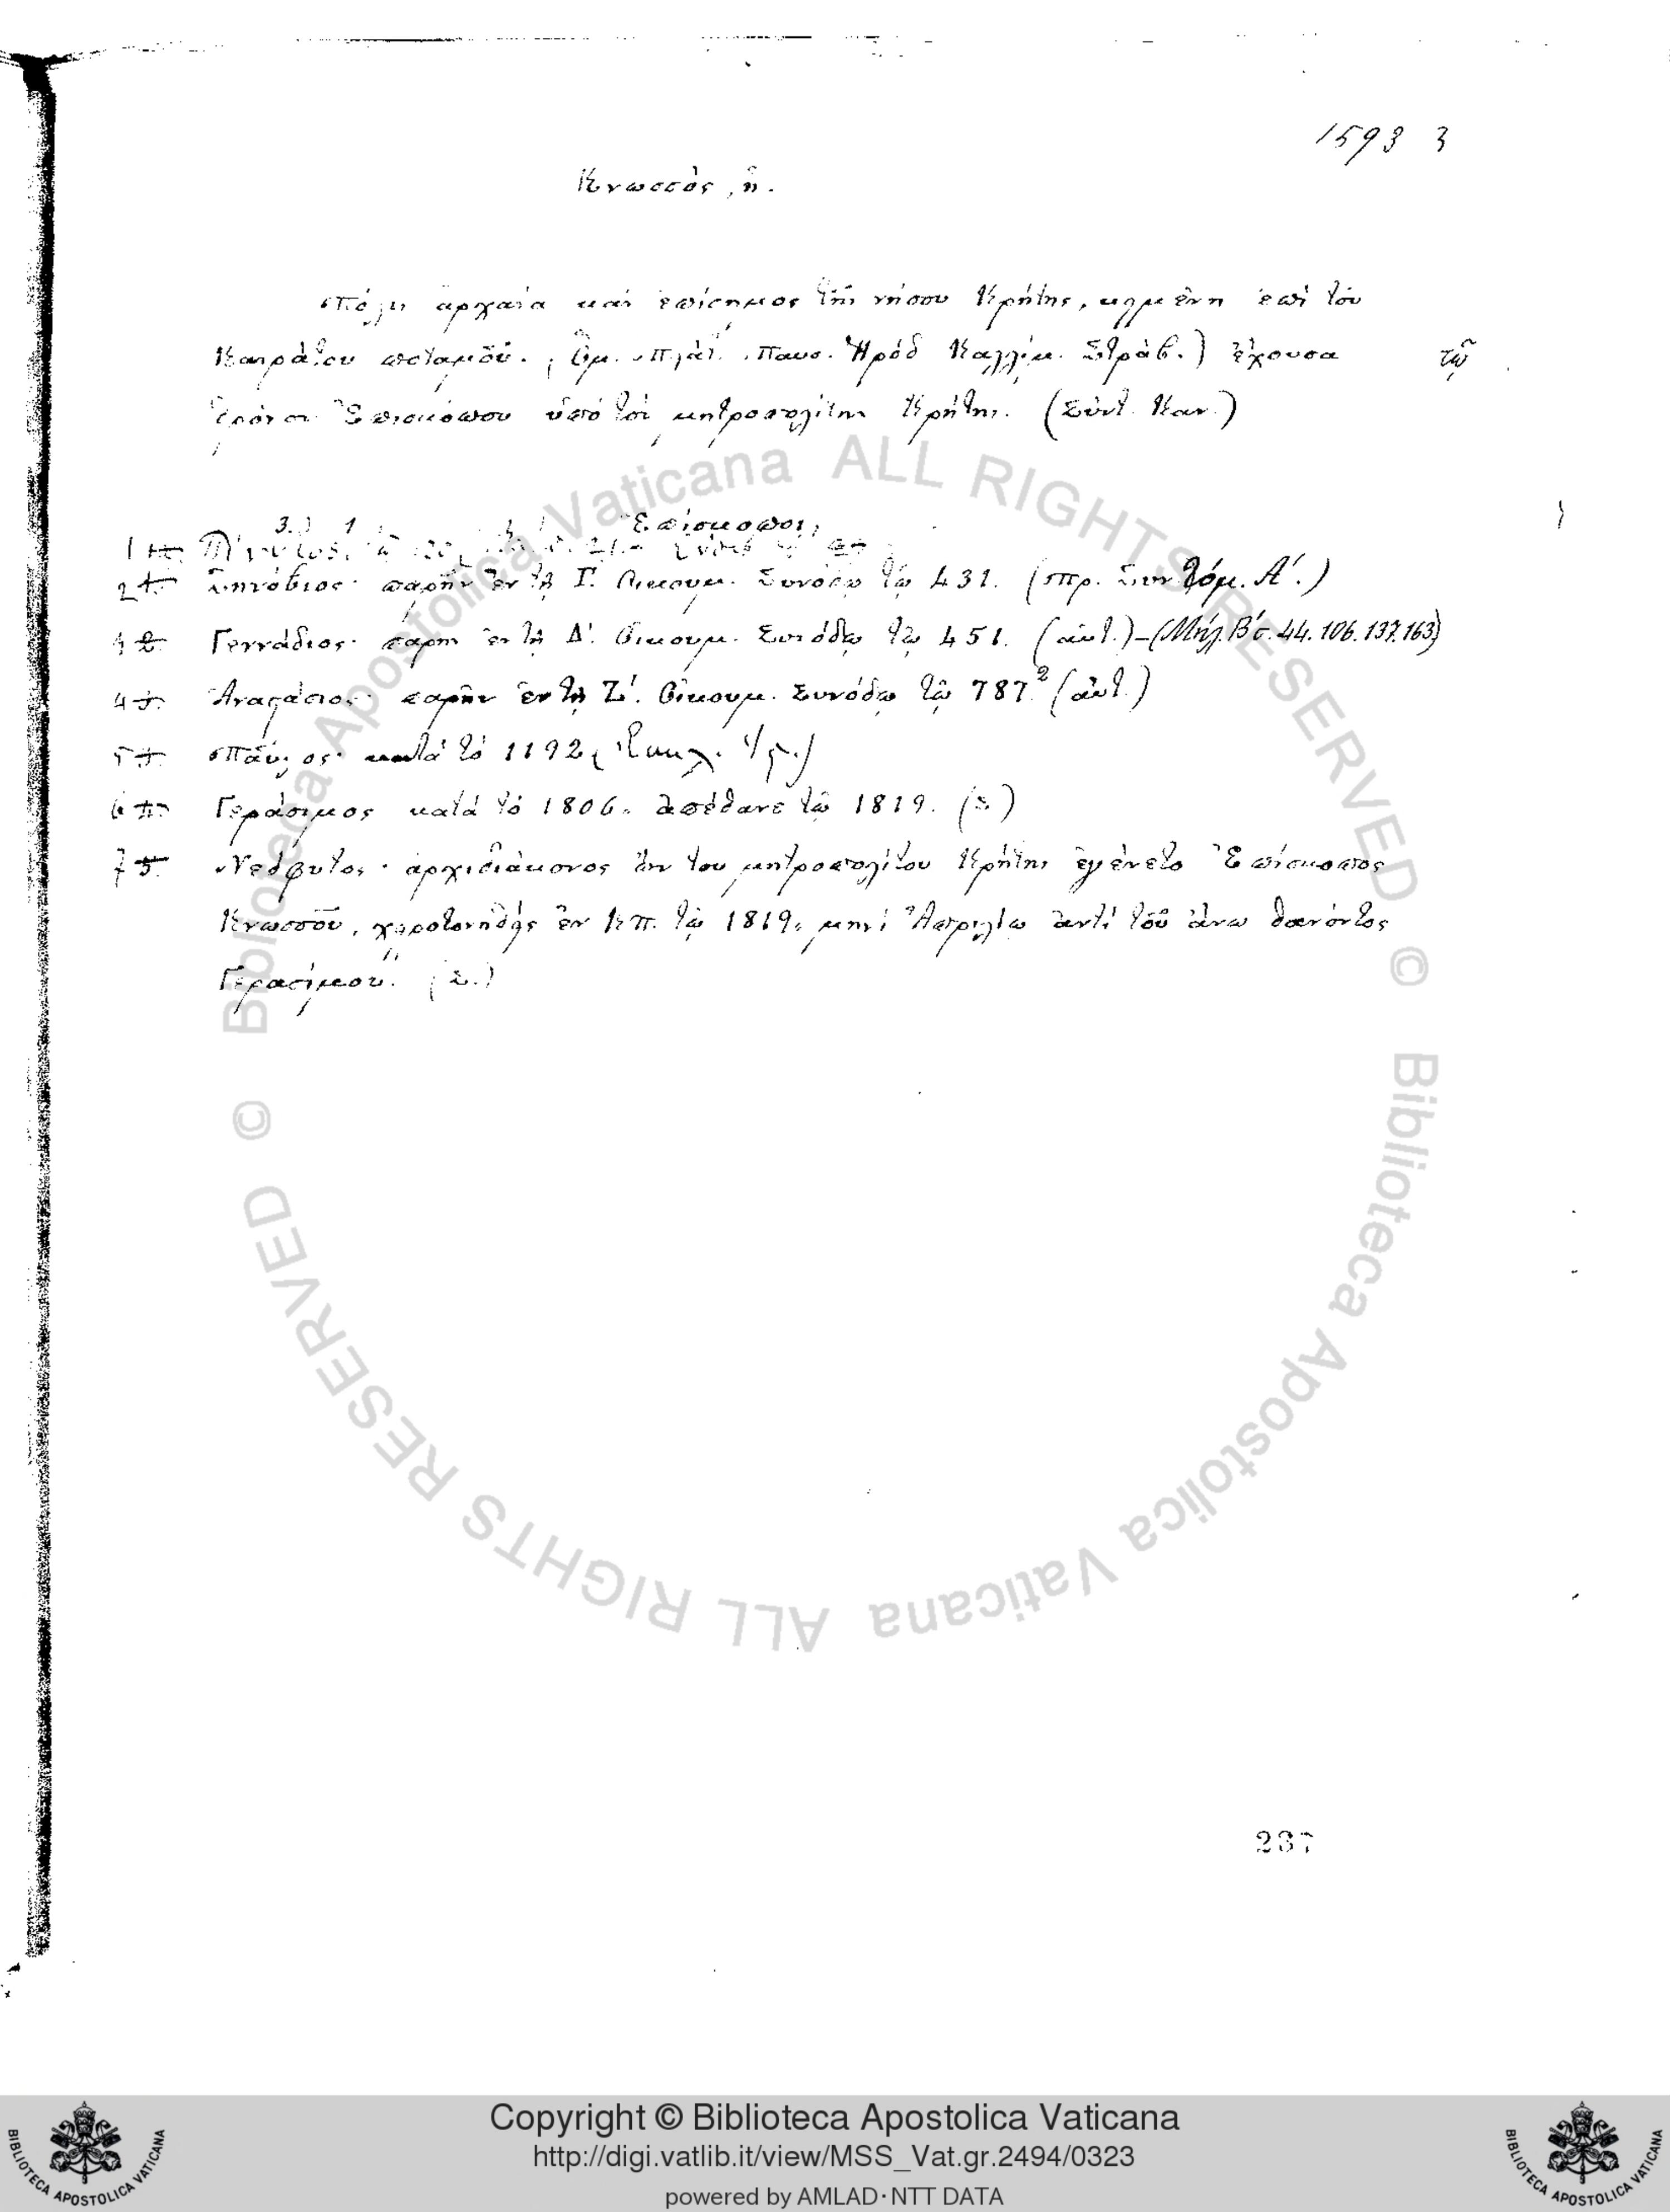 1593 3
Κνωσσὸς, ἡ.
Πόλις ἀρχαία καὶ ἐπίσημος τῆς νήσου Κρήτης, κειμένη ἐπὶ τοῦ
Καιράτου ποταμοῦ. (Ὁμ. Πλάτ. Παυσ. Ἡρόδ Καλλίμ. Στράβ.) ἔχουσα
θρόνον Ἐπισκόπου ὑπὸ τὸν μητροπολίτην Κρήτης. (Σύντ. Καν.)
Ἐπίσκοποι,
1
2 Ζηνόβιος· παρῆν ἐν τῇ Γ΄. Οἰκουμ. Συνόδῳ τῷ 431. (πρ. Συν τόμ. Α΄.)
Γεννάδιος· παρῆν ἐν τῇ Δ΄. Οἰκουμ. Συνόδῳ τῷ 451. (αὐτ.)-(Μήλ. Β΄ σ. 44. 106. 137. 163)
4 Ἀναστάσιος· παρῆν ἐν τῇ Ζ΄. Οἰκουμ. Συνόδῳ τῷ 787. (αὐτ.)
5 Παῦλος· κατὰ τὸ 1192
6 Γεράσιμος κατὰ τὸ 1806. ἀπέθανε τῷ 1819. (Σ)
7 Νεόφυτος· ἀρχιδιάκονος ὢν του μητροπολίτου Κρήτης ἐγένετο Ἐπίσκοπος
Κνωσσοῦ, χειροτονηθεὶς ἐν Κπ. τῷ 1819, μηνὶ Ἀπριλίῳ ἀντὶ τοῦ ἄνω θανόντος
Γερασίμου. (Σ.)
237
© Biblioteca Apostolica Vaticana ALL RIGHTS RESERVED
© Biblioteca Apostolica Vaticana ALL RIGHTS RESERVED
BIBLIOTECA APOSTOLICA VATICANA
Copyright © Biblioteca Apostolica Vaticana
http://digi.vatlib.it/view/MSS_Vat.gr.2494/0323
powered by AMLAD·NTT DATA
BIBLIOTECA APOSTOLICA VATICANA